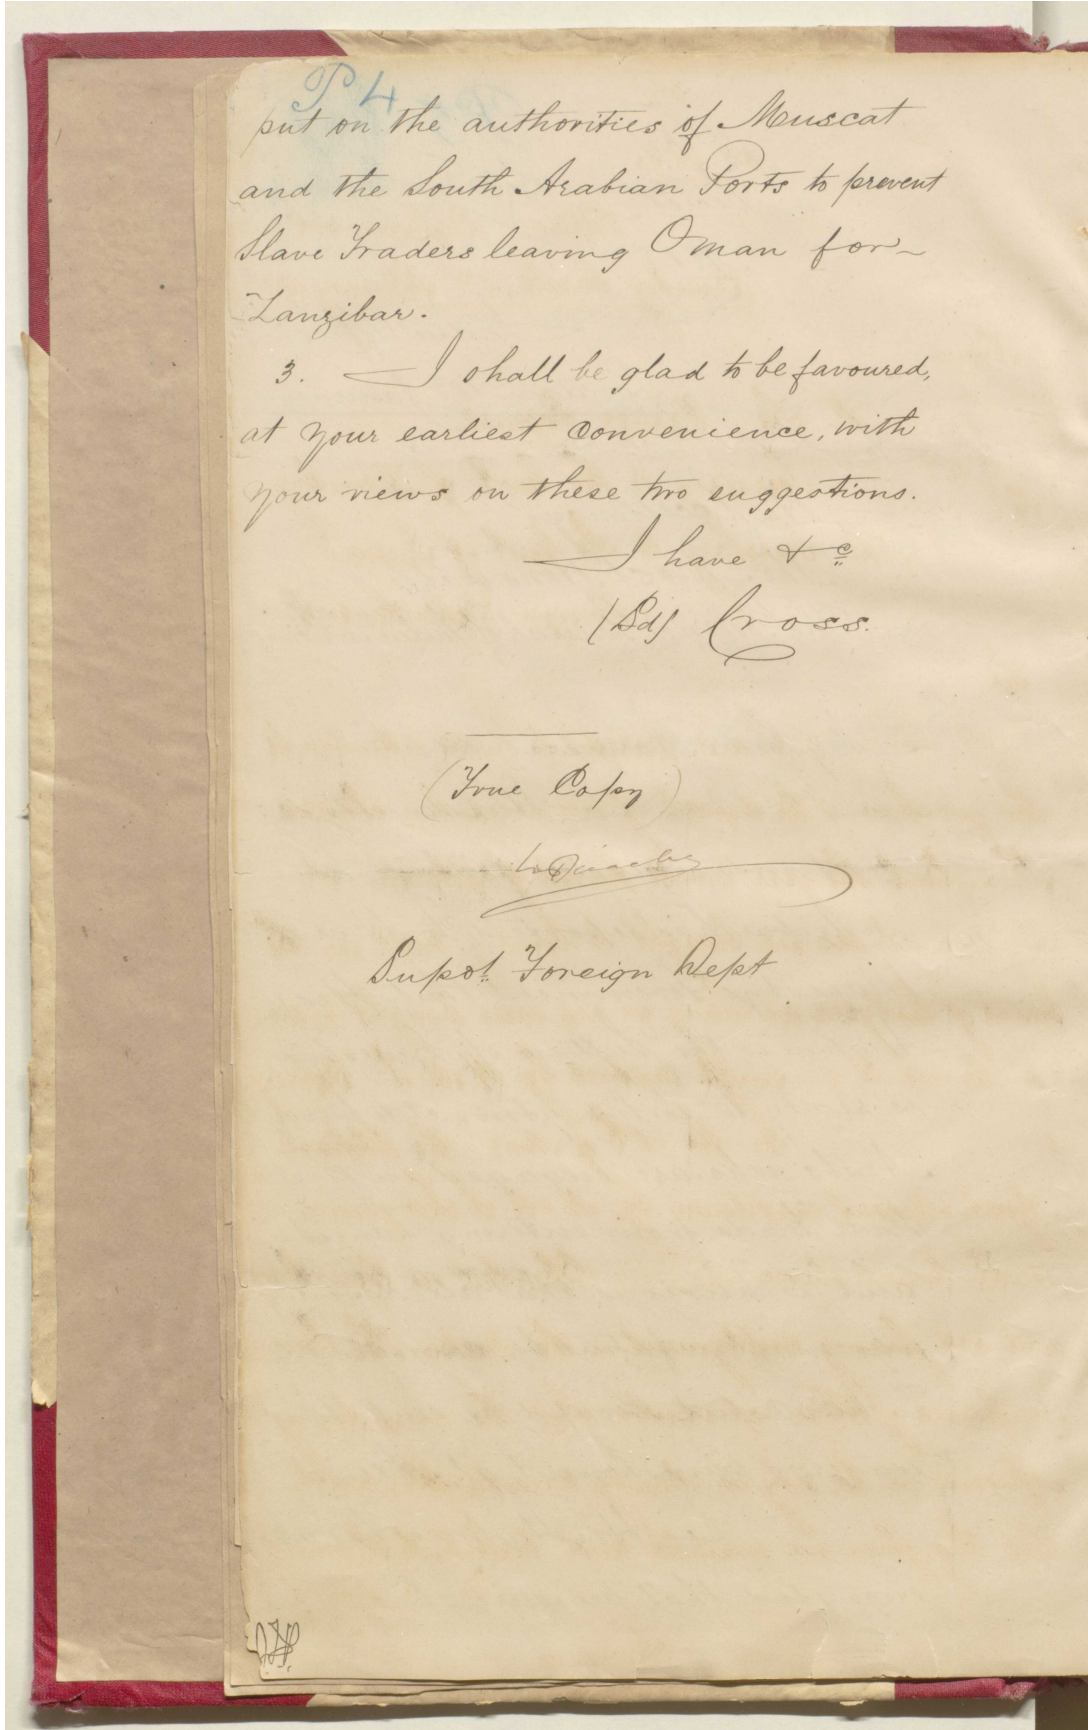 P 4
put on the authorities of Muscat
and the South Arabian Ports to prevent
Slave Traders leaving Oman for
Zanzibar.
3. I shall be glad to be favoured,
at your earliest convenience, with
your views on these two suggestions.
I have &c
(Sd) Cross.
(True Copy)
Supdt. Foreign Dept